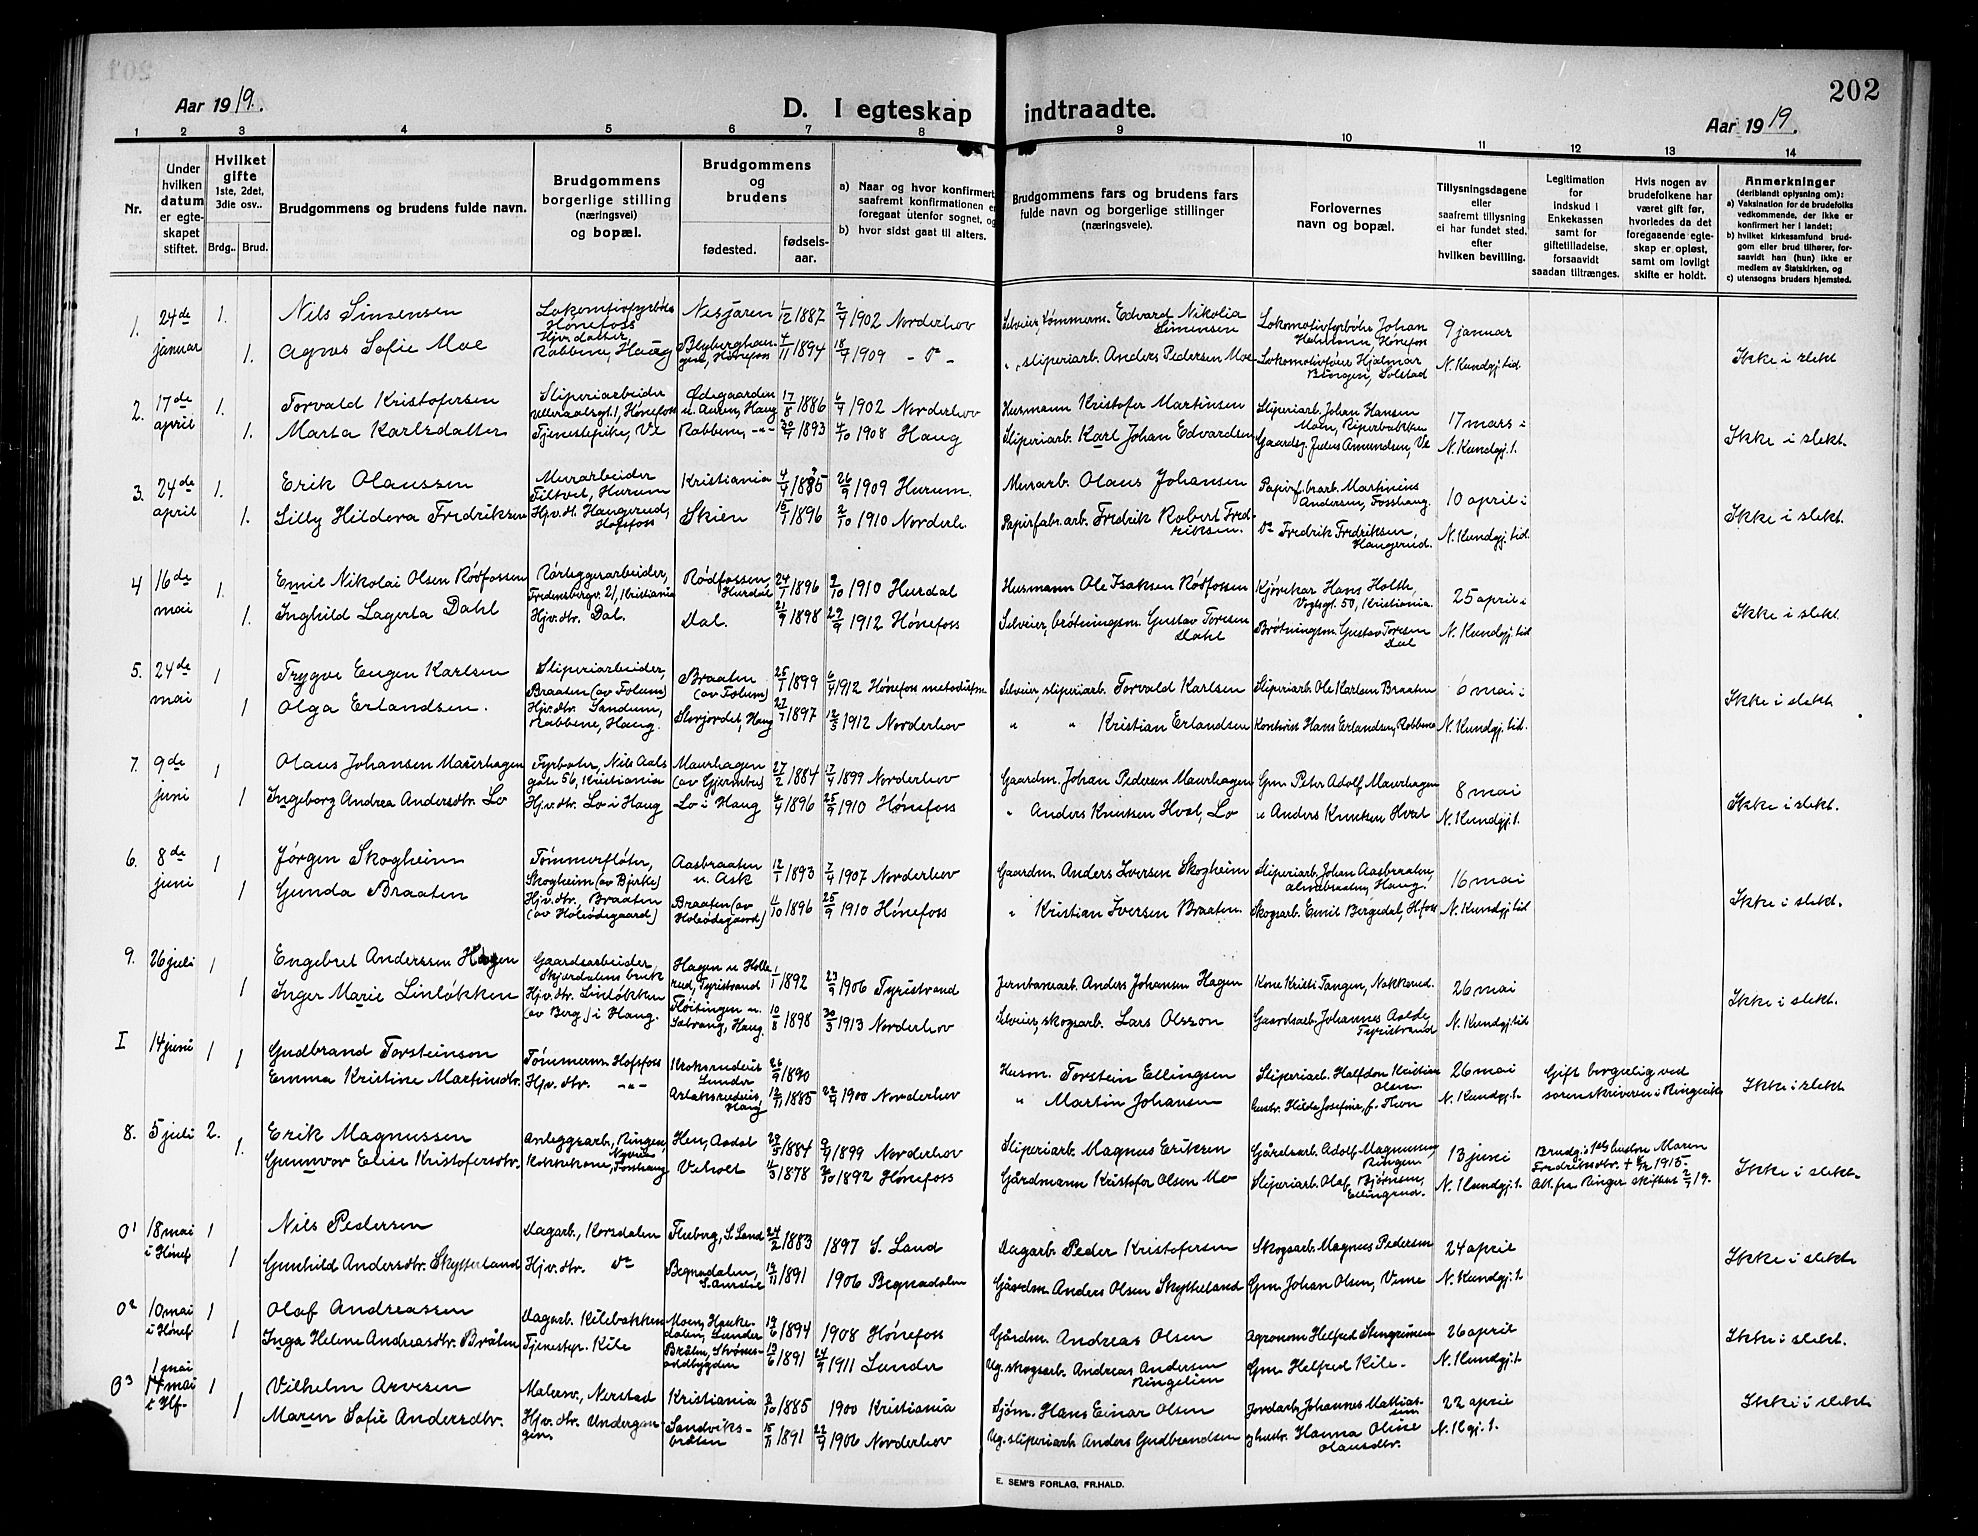 202
Aar 1919.
D. I egteskap indtraadte.
Aar 1919.
1 2 3 4 5 6 7 8 9 10 11 12 13 14
Nr.
Under hvilken datum er egteskapet stiftet.
Hvilket gifte 1ste, 2det, 3die osv..
Brdg.. Brud.
Brudgommens og brudens fulde navn.
Brudgommens borgerlige stilling (næringsvei) og bopæl.
Brudgommens og brudens
fødested. fødselsaar.
a) Naar og hvor konfirmert, saafremt konfirmationen er foregaat utenfor sognet, og
b) hvor sidst gaat til alters.
Brudgommens fars og brudens fars fulde navn og borgerlige stillinger (næringsveie).
Forlovernes navn og bopæl.
Tillysningsdagene eller saafremt tillysning ei har fundet sted, efter hvilken bevilling.
Legitimation for indskud i Enkekassen samt for giftetilladelse, forsaavidt saadan tiltrænges.
Hvis nogen av brudefolkene har været gift før, hvorledes da det foregaaende egteskap er opløst, samt om lovligt skifte er holdt.
Anmerkninger (deriblandt oplysning om):
a) Vaksination for de brudefolks vedkommende, der ikke er konfirmert her i landet;
b) hvilket kirkesamfund brudgom eller brud tilhører, forsaavidt han (hun) ikke er medlem av Statskirken, og
c) utensogns bruders hjemsted.
1. 24de januar 1. Nils Simensen Lokomotivfyrbøter Hønefoss Nesjaren 1/12 1887 2/9 1902 Norderhov Selveier tømmerm. Edvard Nikolai Simensen Lokomotivfyrbøter Johan Helmann, Hønefoss 9 januar
1. Agnes Sofie Moe Hjv. datter, Rabbene, Haug Blyberghaugen, Hønefoss 4/11 1894 18/9 1909 - do - " sliperiarb. Anders Pedersen Moe Lokomotivfører Hjalmar Bingen, Solstad N. Kundgj. tid. Ikke i slekt
2. 17de april 1. Torvald Kristofersen Sliperiarbeider Hønefoss Ødegaarden u. Auren, Haug 17/8 1886 6/9 1902 Norderhov Husmann Kristofer Martinsen Sliperiarb. Johan Hansen Moen, Riperbakken 17 mars i
1. Marta Karlsdatter Tjenestepike, Ve Rabbene, -"- 30/9 1893 4/10 1908 Haug Sliperiarb. Karl Johan Edvardsen Gaardsg. Julius Amundsen, Ve N. Kundgj. t. Ikke i slekt.
3. 24de april 1. Erik Olaussen Murarbeider Tiltvet, Hurum Kristiania 4/9 1895 26/9 1909 Hurum. Murarb. Olaus Johansen Papirf.brarb. Martinius Andersen, Fosshaug. 10 april i
1. Lilly Hildera Fredriksen Hjv. d. Haugerud, Hofsfoss Skien 15/7 1896 2/10 1910 Norderh. Papirfabr.arb. Fredrik Robert Fredriksen. do Fredrik Fredriksen, Haugerud. N. Kundgj. tid. Ikke i slekt.
4 16de mai 1. Emil Nikolai Olsen Rødfossen Rørleggerarbeider, Fredensborgv. 21, Kristiania Rødfossen, Hurdal 24/1 1896 2/10 1910 Hurdal Husmann Ole Isaksen Rødfossen Kjørekar Hans Holth, Vogtsgt. 50, Kristiania. 25 april i
1. Inghild Lagerta Dahl Hjv. dtr. Dal. Dal. 21/9 1898 29/9 1912 Hønefoss Selveier, brøtningsm. Gustav Toresen Dahl Brøtningsm. Gustav Toresen Dal N. Kundgj. tid Ikke i slekt.
5. 24de mai 1 Trygve Eugen Karlsen Sliperiarbeider, Braaten (av Folum) Braaten (av Folum) 25/1 1899 6/4 1912 Hønefoss metodistm Selveier, sliperiarb. Torvald Karlsen Sliperiarb. Ole Karlsen Braaten 6 mai i
1 Olga Erlandsen. Hjv. dtr. Sandum, Rabbene, Haug. Storjordet, Haug 27/7 1897 12/5 1912 Norderhov " " Kristian Erlandsen Kontorist Hans Erlandsen, Rabbene N. Kundgj. tid. Ikke i slekt
7. 9de juni 1 Olaus Johansen Maurhagen Fyrbøter, Nils Aals gate 56, Kristiania Maurhagen (av Gjermbo) 27/2 1884 17/9 1899 Norderhov Gaardm. Johan Pedersen Maurhagen Gm. Peter Adolf Maurhagen 8 mai
1 Ingeborg Andrea Andersdtr. Lo Hjv. dtr. Lo i Haug Lo i Haug 6/9 1896 25/9 1910 Hønefoss " Anders Knutsen Hval, Lo " Anders Knutsen Hval N. Kundgj. t. Ikke i slekt.
6. 8de juni 1 Jørgen Skogheim Tømmerfløter, Skogheim (av Bjerke) Aasbraaten u. Ask 12/1 1893 7/4 1907 Norderhov Gaardm. Anders Iversen Skogheim Sliperiarb. Johan Aasbraaten, Almebraaten, Haug. 16 mai
1 Gunda Braaten Hjv. dtr. Braaten (av Holeødegaard) Braaten (av Holeødegaard) 4/10 1896 25/9 1910 Hønefoss " Kristian Iversen Braaten. Skogsarb. Emil Bergedal, Hfoss N. Kundgj. tid Ikke i slekt.
9. 26 juli 1 Engebret Andersen Hagen Gaardsarbeider, Skjærdalens bruk Hagen u Hollerud, Tyristrand 1/1 1892 23/9 1906 Tyristrand Jernbanearb. Anders Johansen Hagen Kone Kristi Tangen, Nakkerud. 26 mai
1 Inger Marie Linløkken Hjv. dtr. Linløkken (av Berg) i Haug. Fløitingen u. Sørang, Haug. 10/8 1898 30/3 1913 Norderhov Selveier, skogsarb. Lars Olsson Gaardsarb. Johannes Aolde, Tyristrand N. Kundgj. tid Ikke i slekt.
I 14 juni 1 Gudbrand Torsteinson Tømmerm. Hofsfoss Kroksrudeie Lunder 26/9 1890 Husm. Torstein Ellingsen Sliperiarb. Halfdan Kristian Olsen 26 mai Gift borgerlig ved sorenskriveren i Ringerike
1 Emma Kristine Martinsdtr. Hjv. dtr. -"- Haug 12/11 1885 22/9 1900 Norderhov " Martin Johansen Gustv. Hilda Josefine, f. Thon N. Kundgj. t. Ikke i slekt
8. 5 juli 2. Erik Magnussen Anleggsarb., Ringen, Hen, Aadal 28/5 1884 9/9 1899 Norderhov Sliperiarb. Magnus Eriksen Gårdsarb. Adolf Magnussen, Ringen 13 juni Brudg.s 1ste hustru Maren Fredriksdtr. + 1915.
1. Gunnvor Elise Kristofersdtr. Kokkekone, Fosshaug Veholt 4/3 1878 2/10 1892 Hønefoss Gårdmann Kristofer Olsen Mo Sliperiarb. Olaf Bjørnsen, Ellingrud. N. Kundgj. t. Att. fra Ringer. skifteret 2/7 19. Ikke i slekt.
01 18 mai i Hønef. 1 Nils Pedersen Dagarb., Korsdalen Fluberg, S. Land 24/2 1883 1897 S. Land Dagarb. Peder Kristofersen Skogsarb. Magnus Pedersen 24 april
1 Gunhild Andersdtr. Skytterland Hjv. dtr. do Begnadalen, S. Aurdal 19/11 1891 1906 Begnadalen Gårdm. Anders Olsen Skytteland Gm. Johan Olsen, Veme N. Kundgj. t. Ikke i slekt.
02 10 mai i Hønef 1 Olaf Andreassen Dagarb. Kilebakken Moen, Haukedalen, Lunder 19/6 1894 1908 Hønefoss Gårdm. Andreas Olsen Agronom Helfred Stengrimen 26 april
1 Inga Helene Andreasdtr. Bråten Tjenestep. Kile Bråten, Strømsoddbygden 13/6 1891 24/9 1911 Lunder Ug. skogsarb. Andreas Andersen Ringelien Gm. Helfred Kile. N. Kundgj. t. Ikke i slekt.
03 1 mai 17 mai i Hf. 1 Vilhelm Arvesen Malersv., Nerstad Kristiania 2/10 1885 1900 Kristiania Sjøm. Hans Einar Olsen Jordarb. Johannes Mathiassen 22 april
1 Maren Sofie Andersdtr. Hjv. dtr. Undergangen. Sandviksbråten 15/11 1891 23/9 1906 Norderhov Ug. sliperiarb. Anders Gudbrandsen og hustr. Hanna Oline Olausdtr. N. K.gj. t. Ikke i slekt
E. SEM'S FORLAG, FR.HALD.